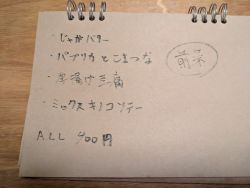 ・じゃがバター
・パプリカとこまつな
前菜
・厚揚げ豆腐
・ミックスキノコソテー
ALL 400円